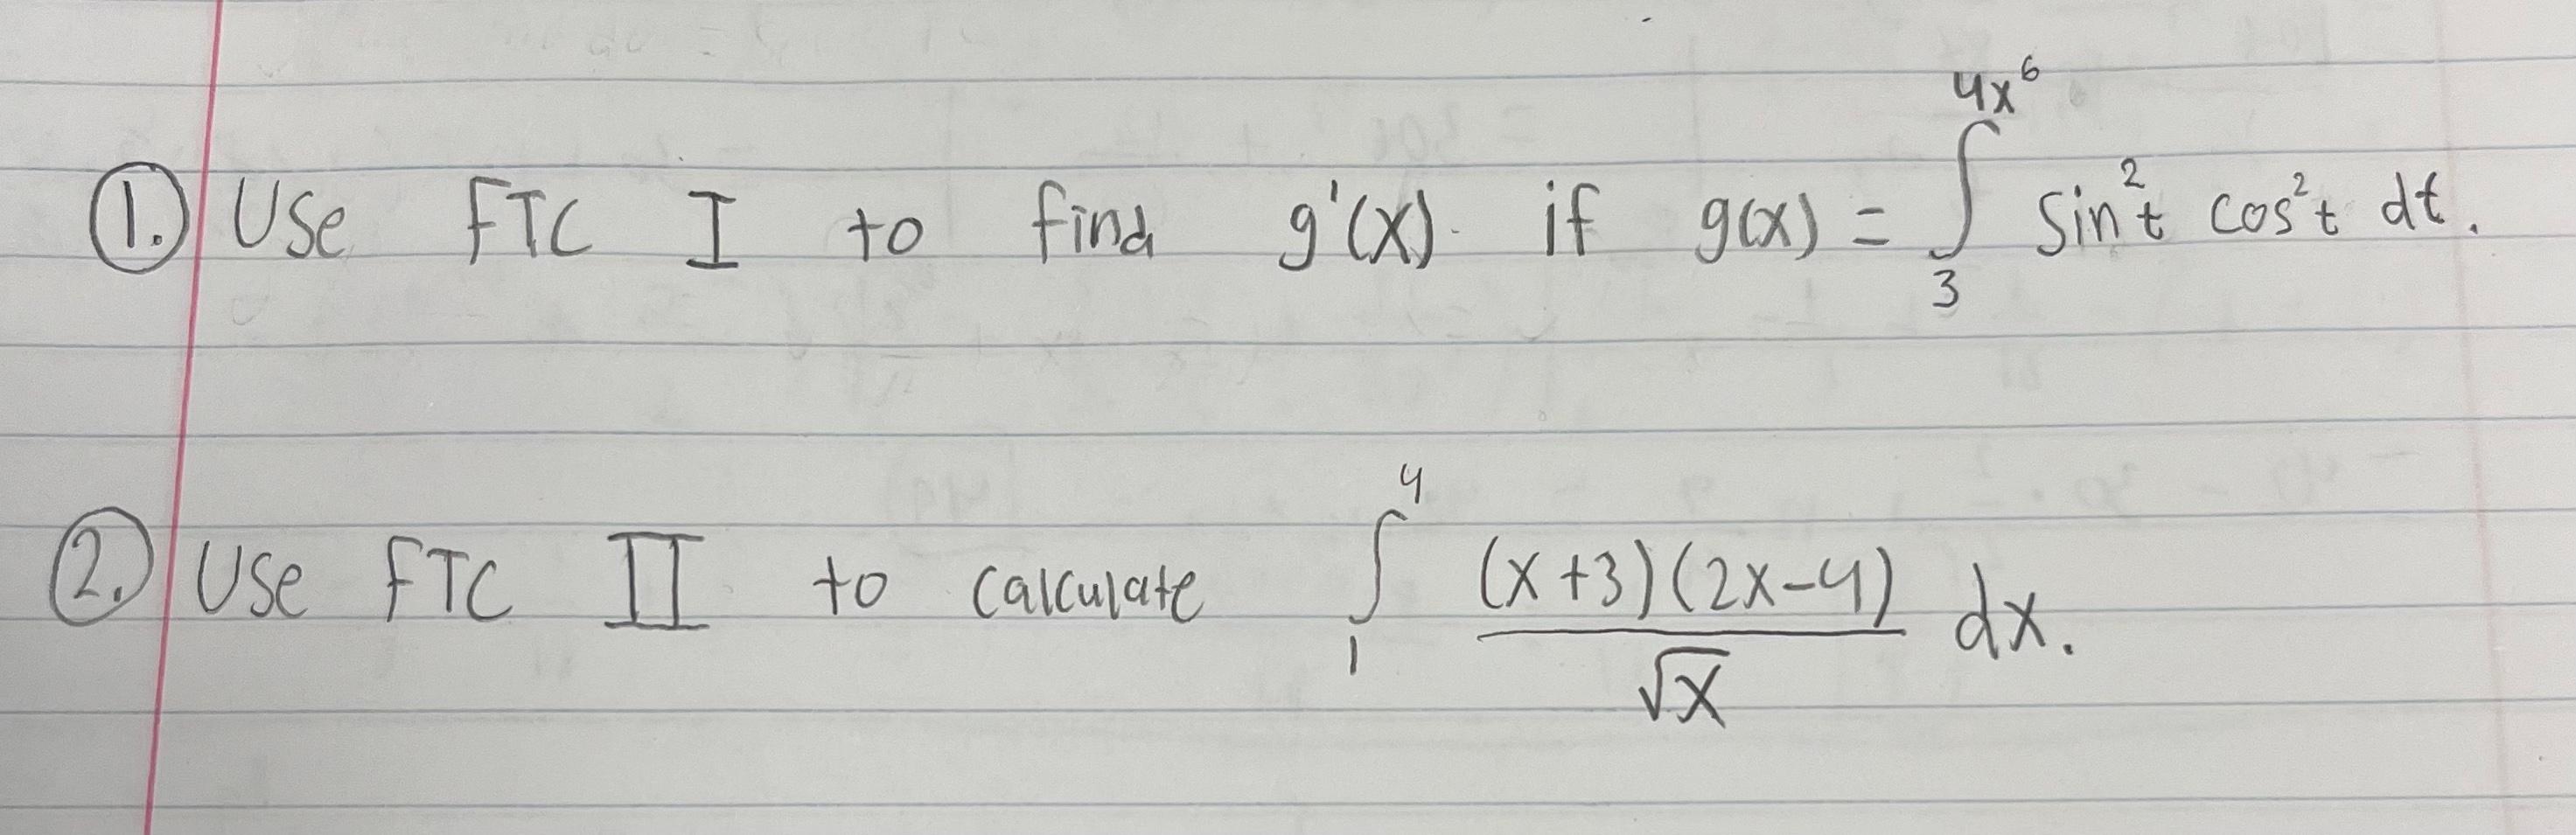 1. Use FTC I to find g'(x) if g(x) = ∫₃^{4x⁶} sin²t cos²t dt.
2. Use FTC II to calculate ∫₁⁴ (x+3)(2x-4)/√x dx.